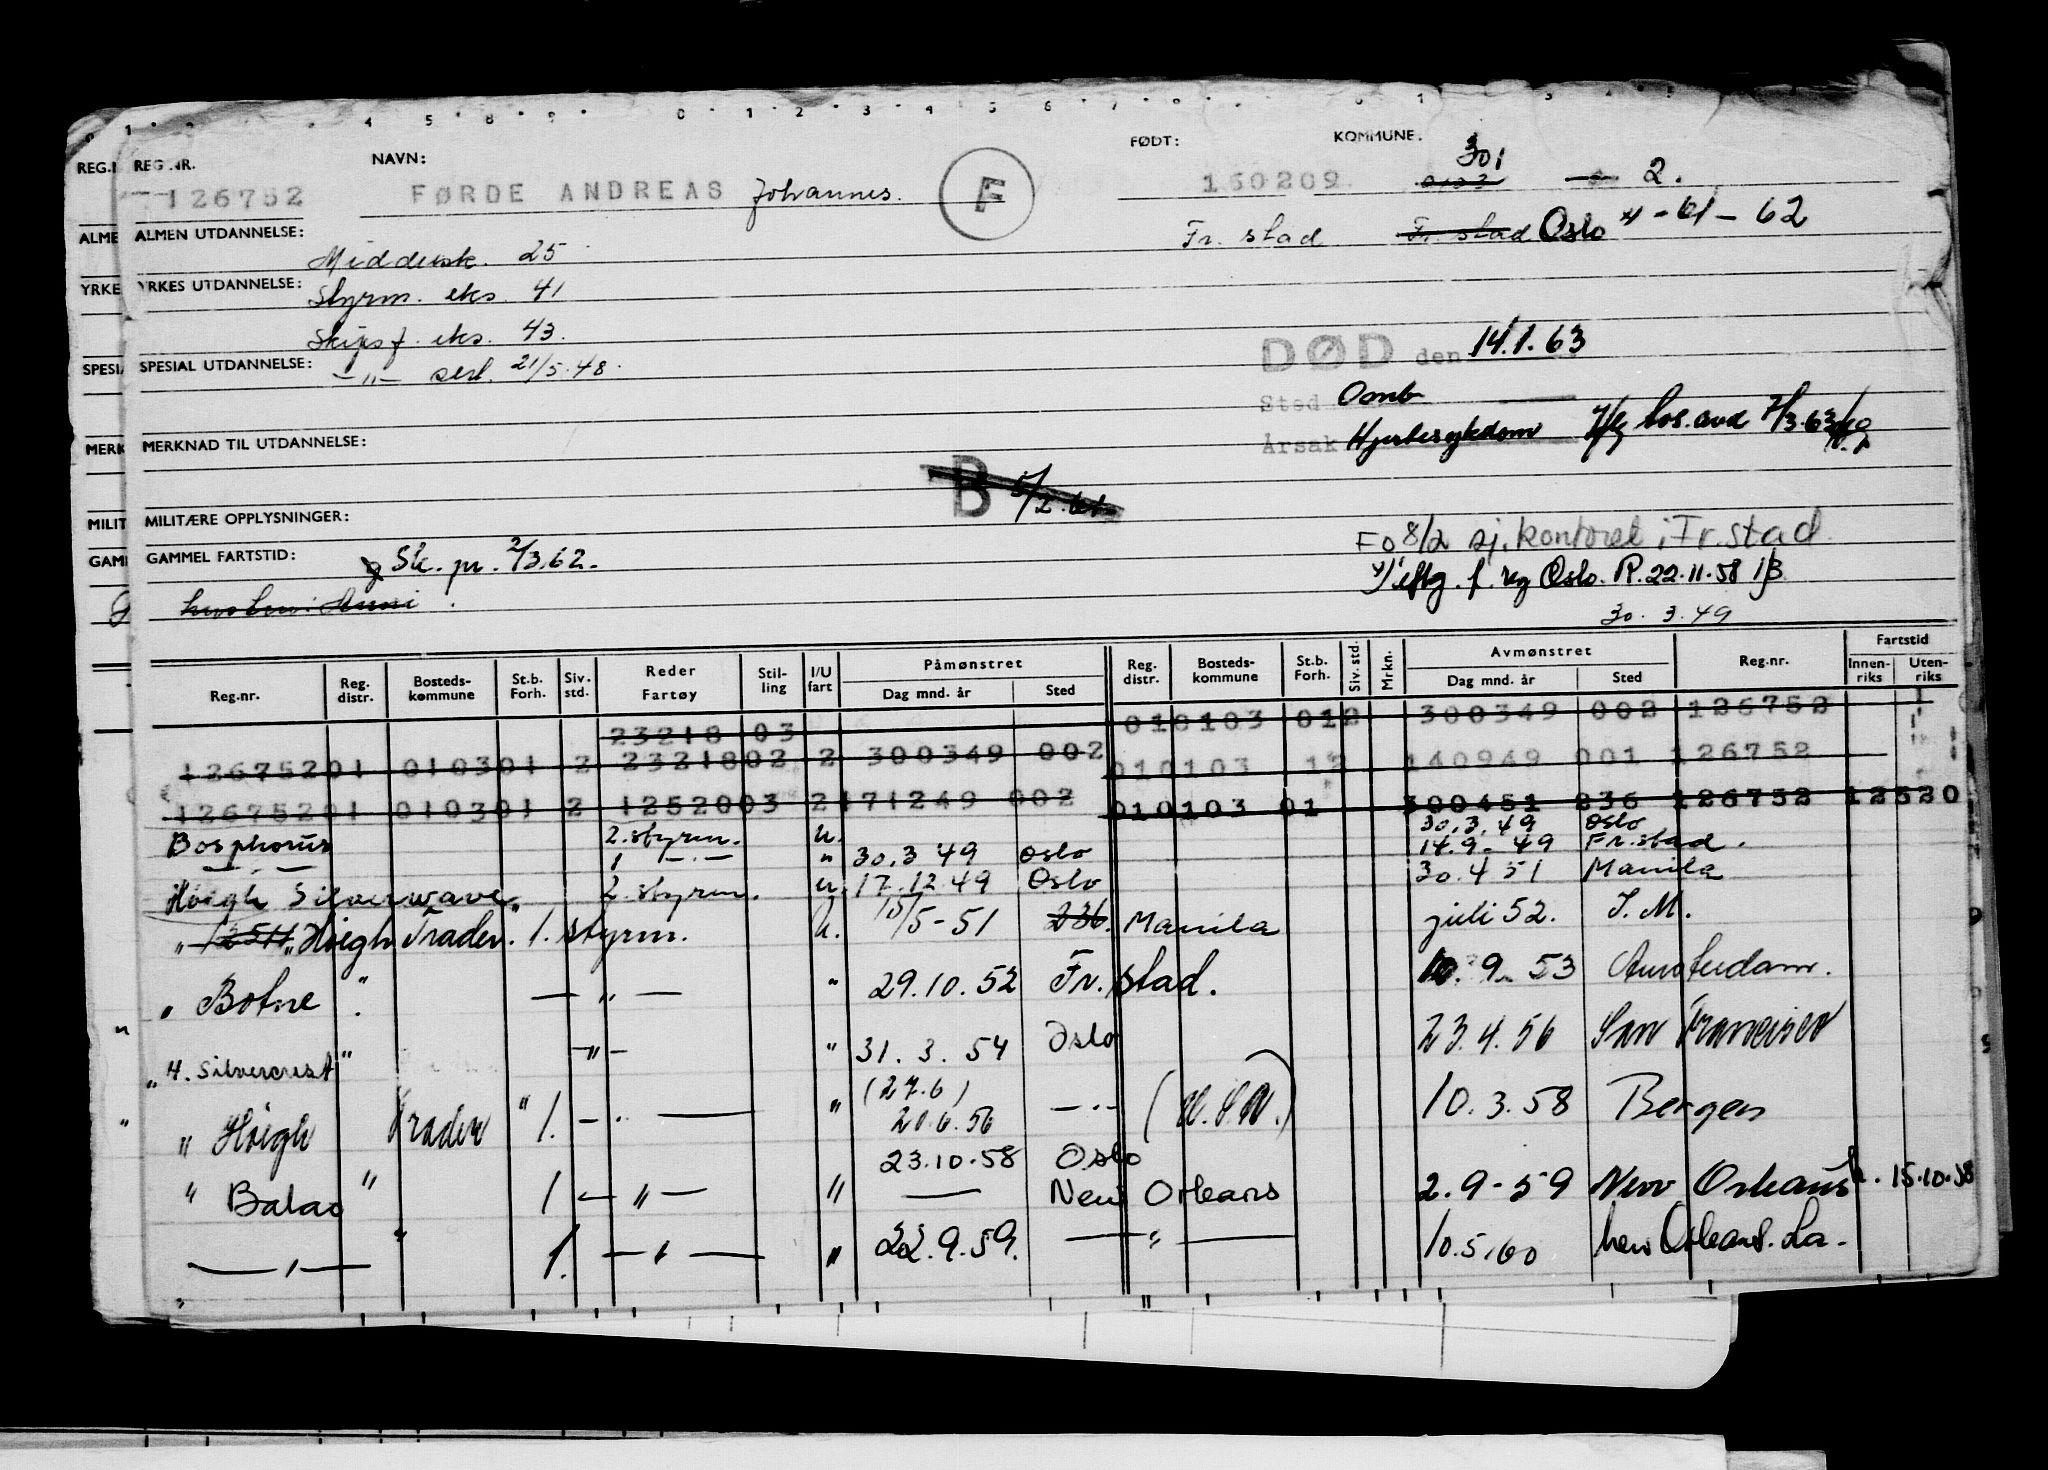 REG.NR. NAVN: FØDT: KOMMUNE. 301
126752 FØRDE ANDREAS Johannes. F 160209 2.
ALMEN UTDANNELSE: Middelsk. 25 Fr. stad Fr. stad Oslo 62
YRKES UTDANNELSE: Styrm. eks. 41
Skipsf. eks. 43. DØD den 14.1.63
SPESIAL UTDANNELSE: —"— sert. 21/5.48.
Sted Oomb
Årsak Hjertesykdom 7/3.63
MERKNAD TIL UTDANNELSE:
B 5/2
MILITÆRE OPPLYSNINGER:
FO 8/2 sj.kontoret i Fr.stad
GAMMEL FARTSTID: Sk. pr. 2/3.62. eftg. f. reg Oslo. R. 22.11.58
30.3.49
Reg.nr. Reg. distr. Bosteds-kommune St.b. Forh. Siv. std. Reder Fartøy Stil-ling I/U fart Påmønstret Dag mnd. år Sted Reg. distr. Bosteds-kommune St.b. Forh. Siv. std. Mrkn. Avmønstret Dag mnd. år Sted Reg.nr. Fartstid Innen-riks Uten-riks
23218 03 010103 012 300349 002 126752
126752 01 0103 01 2 23218 02 2 300349 002 010103 12 140949 001 126752
126752 01 0103 01 2 12520 03 2 171249 002 010103 01 300451 236 126752 12520
Bosphorus 2. styrm. u. 30.3.49 Oslo
—"— 1 —"— " 30.3 49 Oslo 14.9-49 Fr.stad.
Høigh Silverwave. 2. styrm. u. 17.12.49 Oslo 30.4 51 Manila
" 12511 "Høigh Trader. 1. styrm. u. 15/5-51 236. Manila juli 52. I.M.
" Botne " —"— " 29.10.52 Fr. stad. 10.9.53 Amsterdam.
"H. Silvercrest" —"— " 31.3.54 Oslo 23.4.56 San Francisco
(27.6)
" Høigh Trader " 1. —"— " 20.6.56 —"— 10.3.58 Bergen
23.10.58 Oslo
" Balao " 1 —"— " — New Orleans 2.9-59 New Orleans 15.10.58
—"— " 1. —"— " 22.9.59. —"— 10.5.60 New Orleans. La.